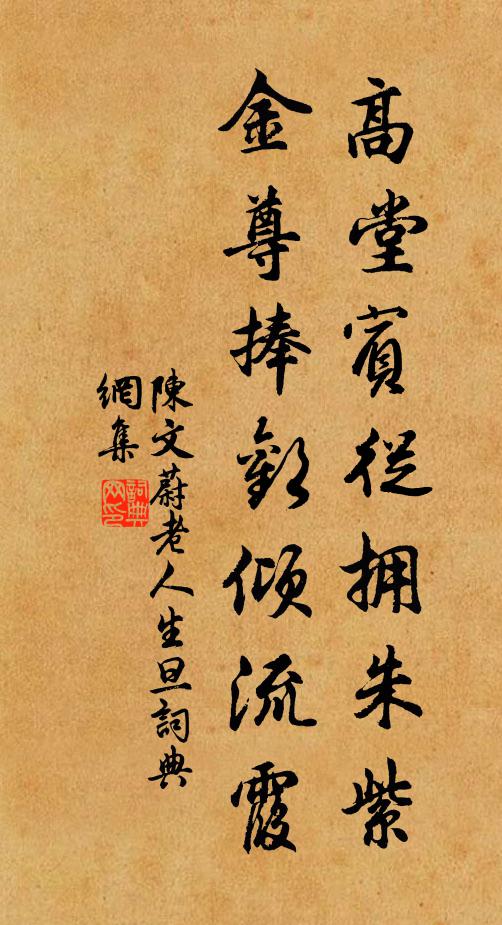 高堂賓從拥朱紫
金尊捧勸傾流霞
陳文蔚老人生旦詞典
網集
詞典
网印